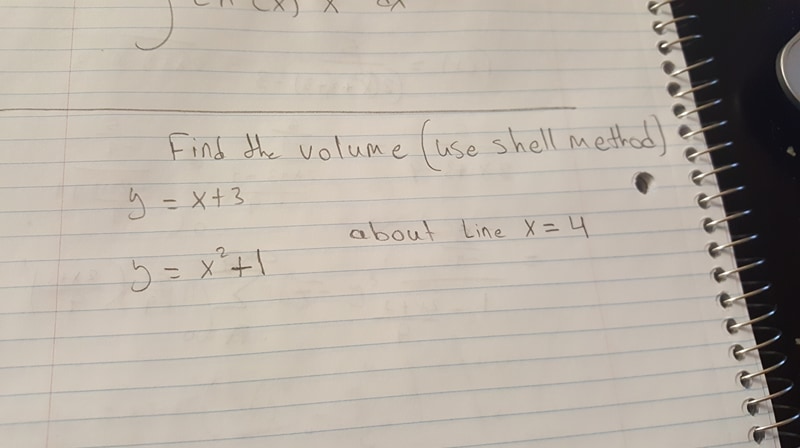 (x) x dx
Find the volume (use shell method)
y = x+3
about Line x=4
y = x²+1